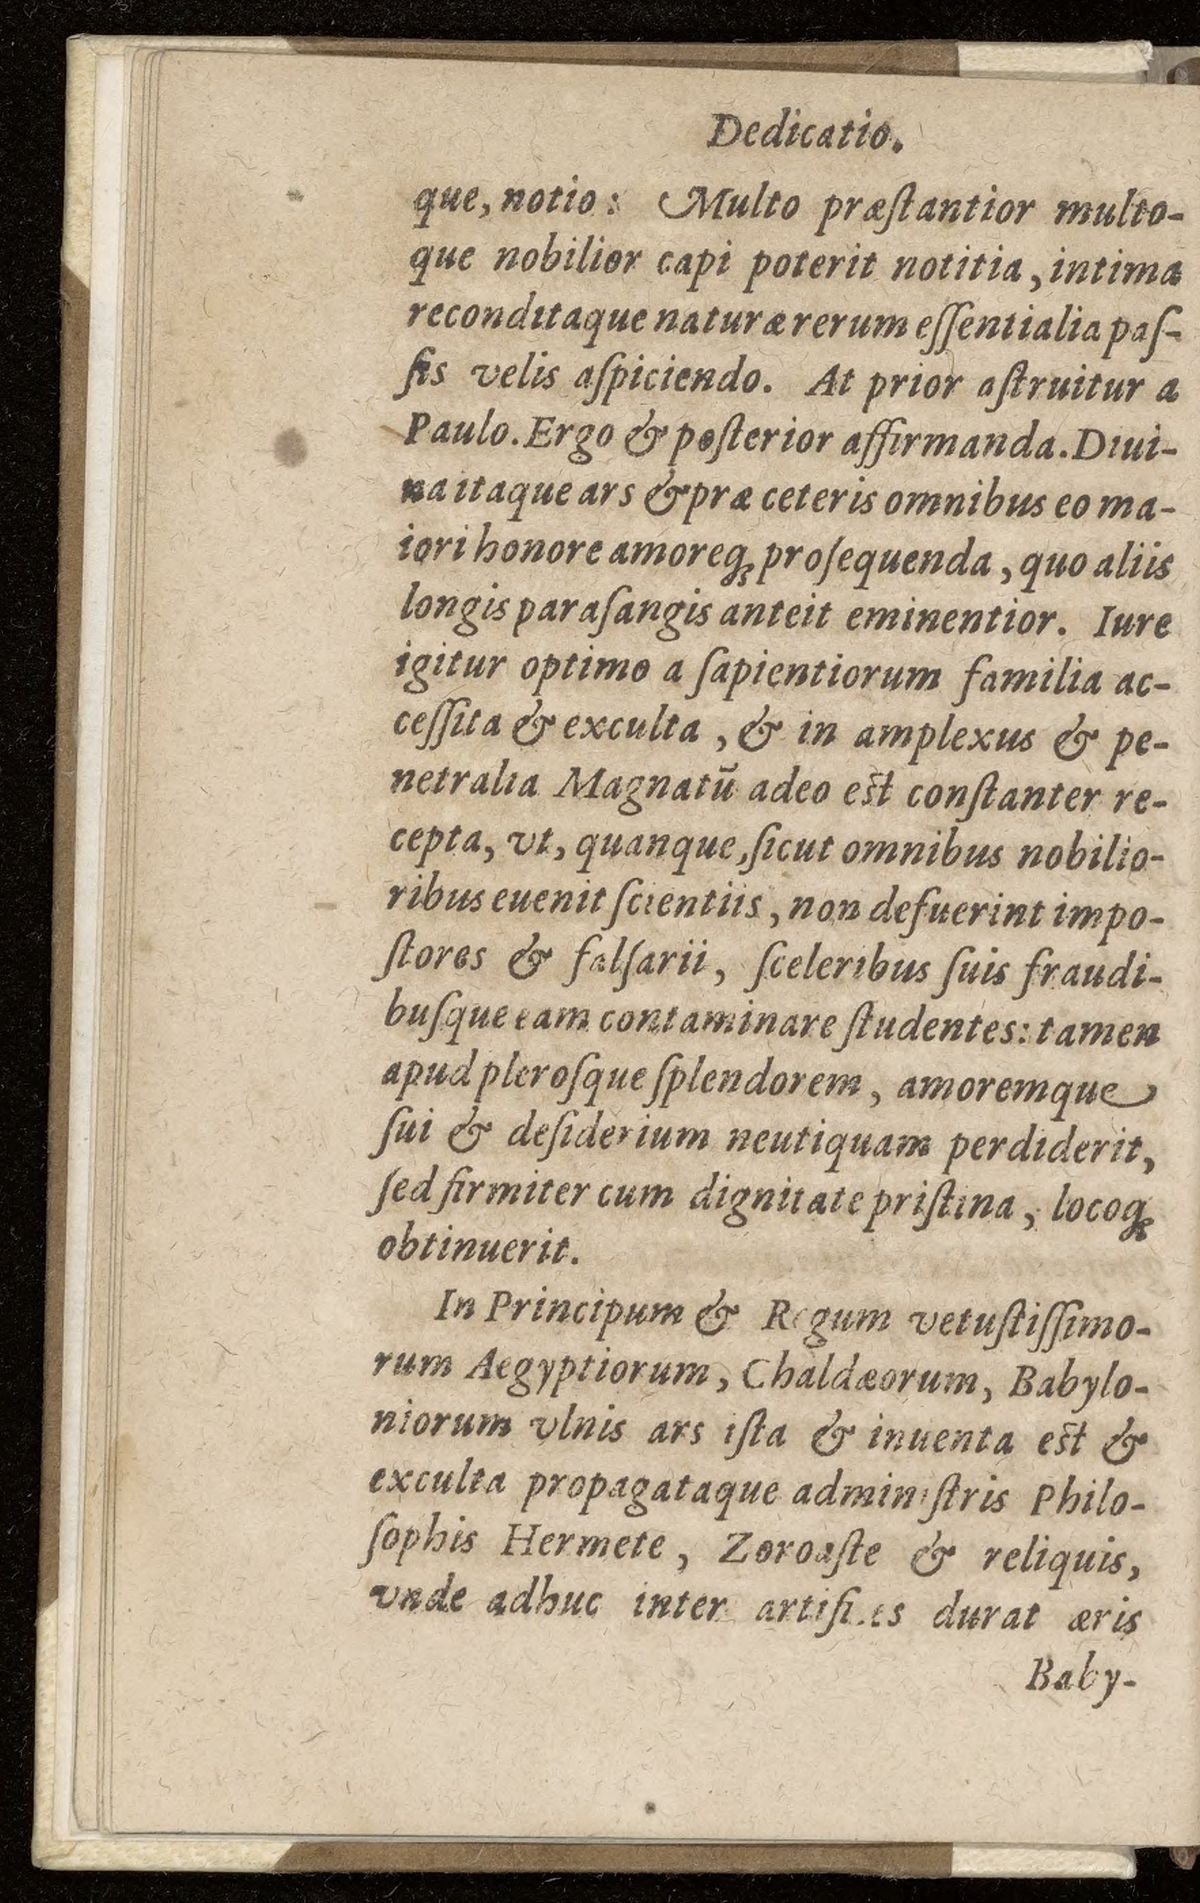 Dedicatio.
que, notio: Multo præſtantior multo-
que nobilior capi poterit notitia, intima
reconditaque naturæ rerum eſſentialia paſ-
ſis velis aſpiciendo. At prior aſtruitur a
Paulo. Ergo & poſterior affirmanda. Diui-
na itaque ars & præ ceteris omnibus eo ma-
iori honore amoreq; proſequenda, quo aliis
longis paraſangis anteit eminentior. Iure
igitur optimo a ſapientiorum familia ac-
ceſſita & exculta, & in amplexus & pe-
netralia Magnatū adeo eſt conſtanter re-
cepta, vt, quanque, ſicut omnibus nobilio-
ribus euenit ſcientiis, non defuerint impo-
ſtores & falſarii, ſceleribus ſuis fraudi-
buſque eam contaminare ſtudentes: tamen
apud pleroſque ſplendorem, amoremque
ſui & deſiderium neutiquam perdiderit,
ſed firmiter cum dignitate priſtina, locoq;
obtinuerit.
In Principum & Regum vetuſtiſſimo-
rum Aegyptiorum, Chaldæorum, Babylo-
niorum vlnis ars iſta & inuenta eſt &
exculta propagataque adminiſtris Philo-
ſophis Hermete, Zoroaſte & reliquis,
vnde adhuc inter artifices durat æris
Baby-